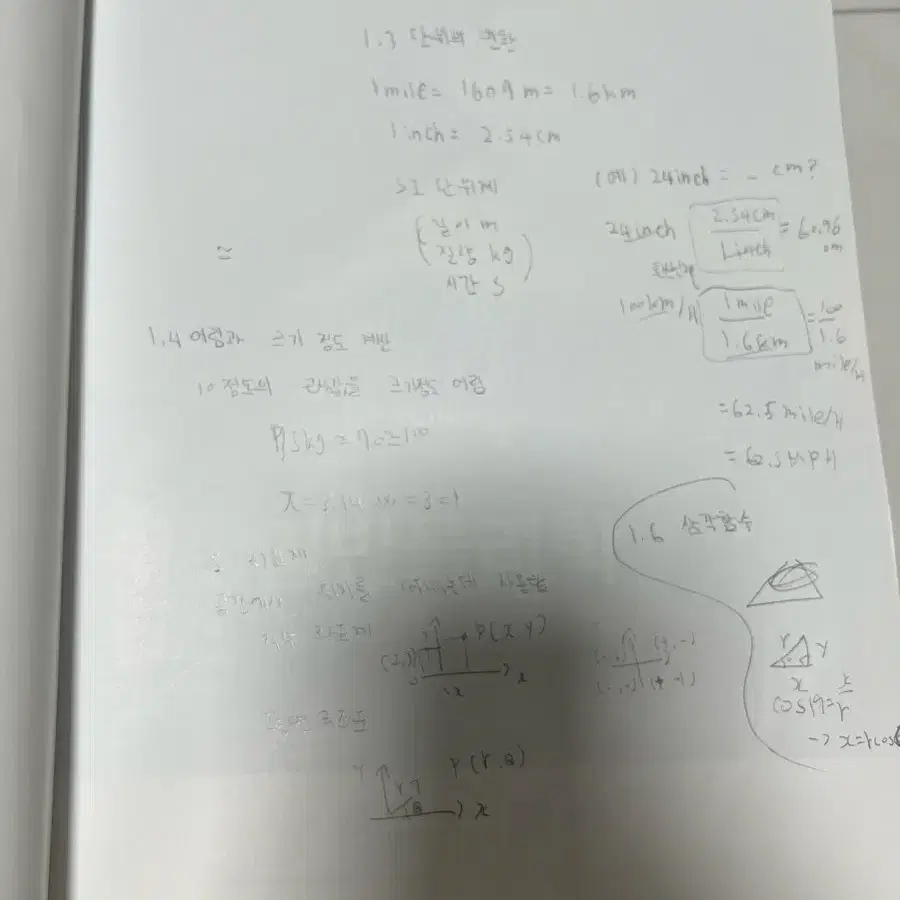 1.3 단위의 변환
1mile = 1609m = 1.6km
1inch = 2.54cm
SI 단위계
길이 m
질량 kg
시간 s
≃
(예) 24inch = _ cm?
24inch 2.54cm / 1inch = 60.96 cm
100km/H 1mile / 1.6km = 100 / 1.6 mile/H
= 62.5 mile/H
= 62.5 MPH
1.4 어림과 크기 정도 계산
10정도의 크기정도 어림
좌표계
공간에서 위치를 사용함
직각 좌표계
P(x y)
x
극좌표
Y P(r.θ)
r
θ x
1.6 삼각함수
r Y
x
cosθ = x / r
-> x=rcosθ